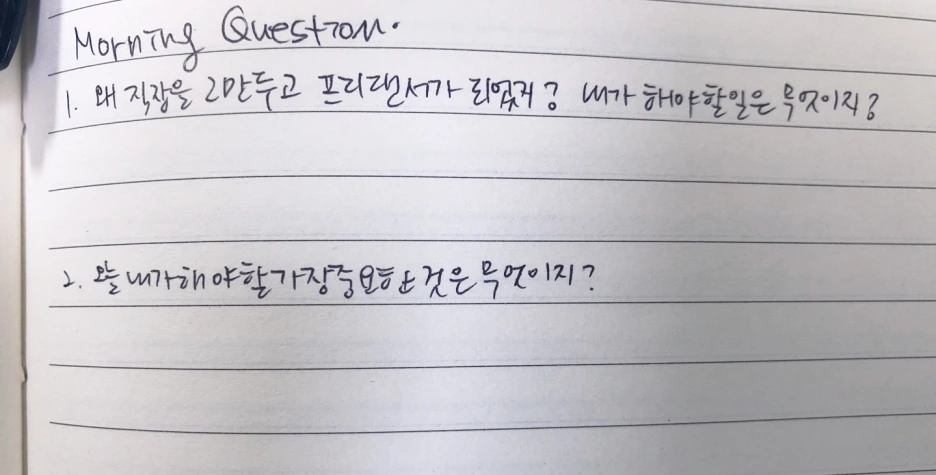 Morning Question.
1. 왜 직장을 그만두고 프리랜서가 되었지? 내가 해야할일은 무엇이지?
2. 오늘 내가해야할가장중요한 것은 무엇이지?